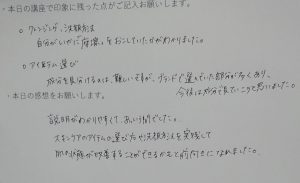 ・本日の講座で印象に残った点がご記入お願いします。
○ クレンジング、洗顔方法
自分がいかに摩擦をおこしていたかがわかりました。
○ アイテム選び
成分を見分けるのは、難しいですが、ブランドで選んでいた部分が多くあり、
今後は成分で見ていこうと思いました。
・本日の感想をお願いします。
説明がわかりやすくて、あっという間でした。
スキンケアのアイテムの選び方や洗顔方法を実践して
肌の状態が改善することができるかもと前向きになれました。